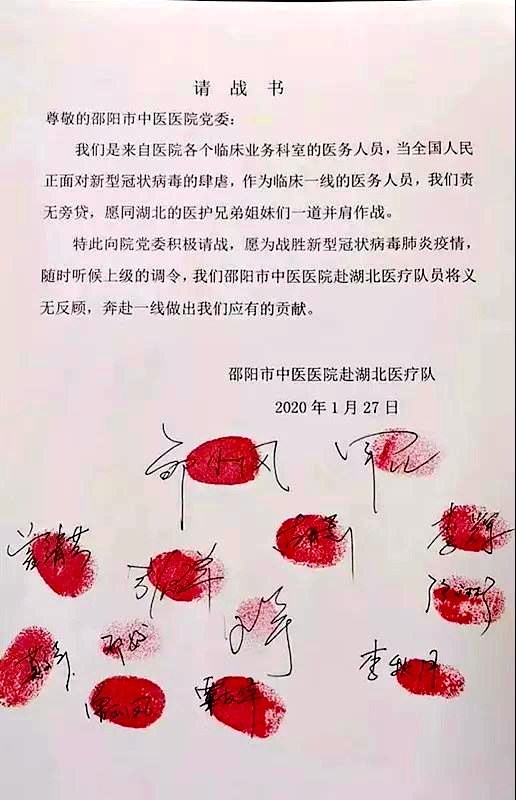 请战书
尊敬的邵阳市中医医院党委：
我们是来自医院各个临床业务科室的医务人员，当全国人民
正面对新型冠状病毒的肆虐，作为临床一线的医务人员，我们责
无旁贷，愿同湖北的医护兄弟姐妹们一道并肩作战。
特此向院党委积极请战，愿为战胜新型冠状病毒肺炎疫情，
随时听候上级的调令，我们邵阳市中医医院赴湖北医疗队员将义
无反顾，奔赴一线做出我们应有的贡献。
邵阳市中医医院赴湖北医疗队
2020年1月27日
李辉
李秋月